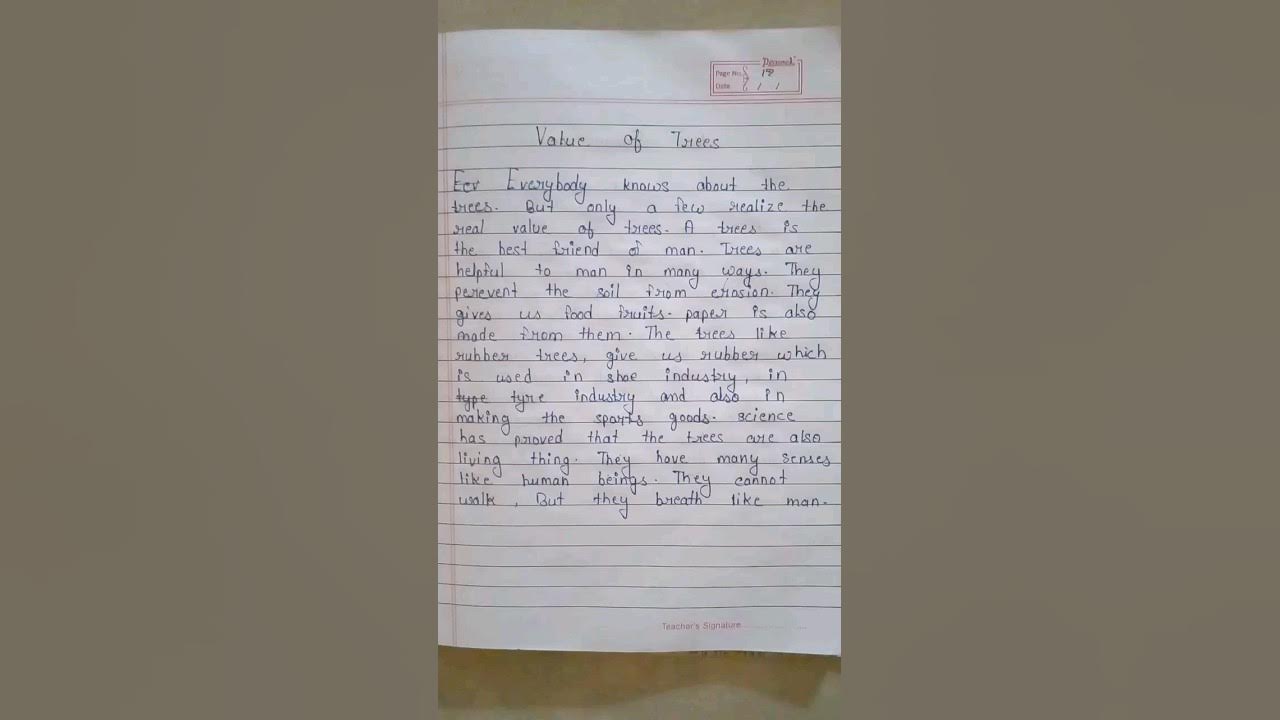 Page No. 18
Date / /
Value of Trees
Eev Everybody knows about the
trees. But only a few realize the
real value of trees. A trees is
the best friend of man. Trees are
helpful to man in many ways. They
perevent the soil from erosion. They
gives us food fruits. paper is also
made from them. The trees like
rubber trees, give us rubber which
is used in shoe industry, in
type tyre industry and also in
making the sports goods. science
has proved that the trees are also
living thing. They have many senses
like human beings. They cannot
walk, But they breath like man.
Teacher's Signature